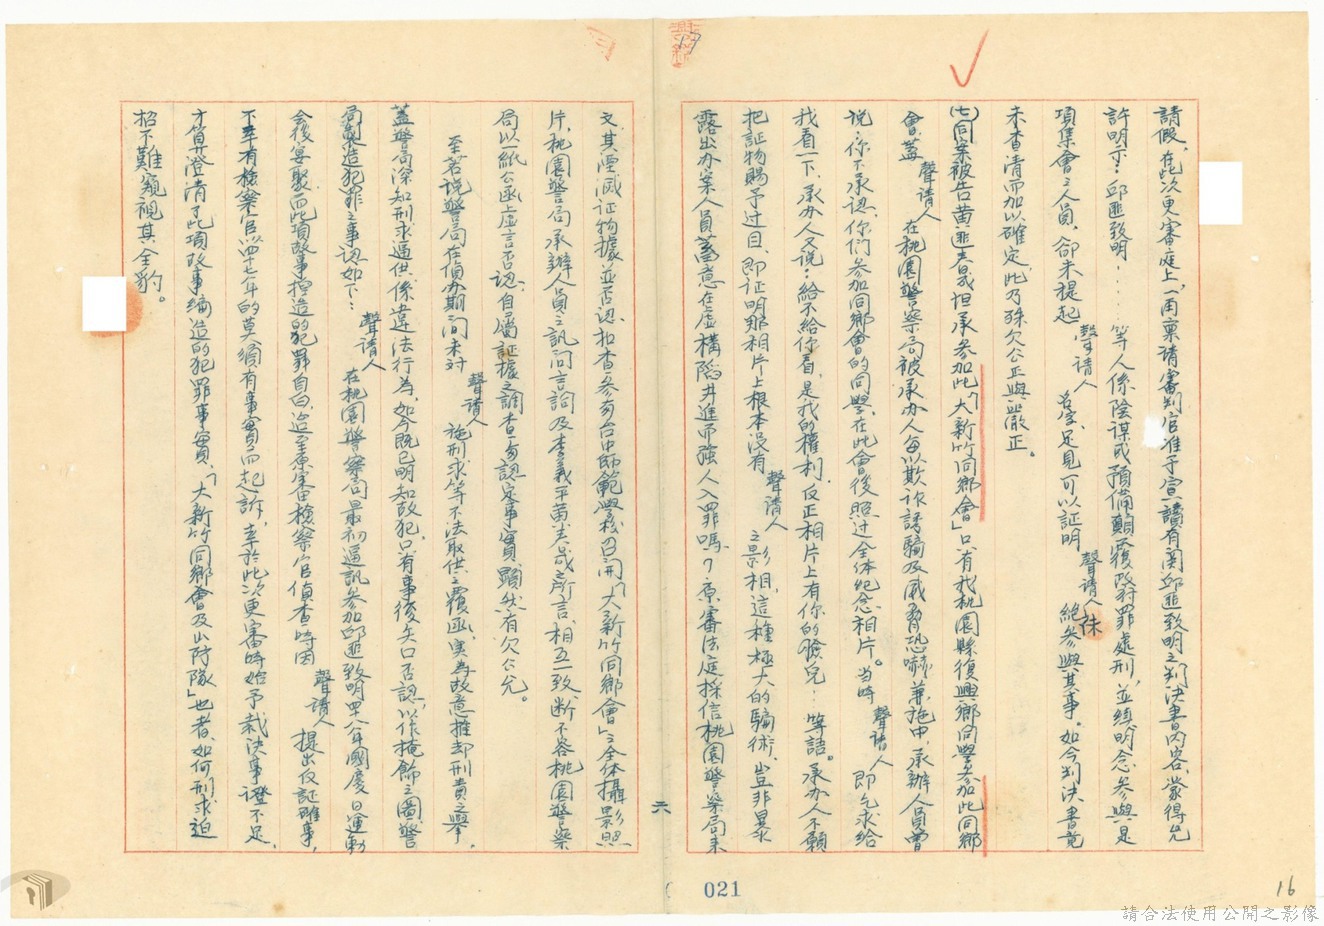 請假，在此次更審庭上，再稟請審判官准予宣讀有関邱匪致明之判決書內容、蒙得允
許明示：邱匪致明……等人係陰謀或預備顛覆政府罪處刑，並縝明念參與是
項集會之人員，卻未提起聲請人 名字，足見可以証明聲請人 絕參與其事。如今判決書竟
未查清而加以確定，此乃殊欠公正與嚴正。
(七)同案被告黄匪春成坦承參加此「大新竹同鄉會」只有我桃園縣復興鄉同學參加此同鄉
會，蓋聲請人 在桃園警察局被承办人每以欺詐誘騙及威脅恐嚇兼施中，承辦人員曾
說：你不承認、你們參加同鄉會的同學，在此會後照过全体纪念相片。當時聲請人 即乞求給
我看一下，承办人又說：給不給你看，是我的權利，反正相片上有你的臉兒…等話。承办人不願
把証物賜予过目、即証明那相片上根本没有聲請人 之影相，這種極大的騙術，豈非暴
露出办案人員蓄意在虛構陷井進而強人入罪嗎？原審法庭採信桃園警察局来
文，其湮滅证物據並否認扣查參加台中師範學校召開「大新竹同鄉會」之全体攝影照
片，桃園警局承辦人員之訊問言詞及李義平黄春成之所言，相互一致，断不容桃園警察
局以一紙公函上虛言否認，自属証據之調查與認定事實，顯然有欠公允。
至若說警局在偵办期间未对聲請人 施刑求等不法取供之覆函，実為故意推却刑責之舉，
蓋警局深知刑求逼供係違法行為，如今既已明知故犯，只有事後矢口否認，以作掩飾之圖，警
局製造犯罪之事認如下：聲請人 在桃園警察局最初逼訊參加邱匪致明四十八年國慶日運動
会後宴聚，而此項故事捏造的犯罪自白，迨至原審檢察官偵查時因聲請人 提出反証雖事，
不幸有檢察官以四十七年的莫須有事實而起訴，幸於此次更審時始予裁決事證不足，
才算澄清了此項故事編造的犯罪事實，「大新竹同鄉會及山防隊」也者，如何刑求迫
招不難窺視其全豹。
六
021
16
17
請合法使用公開之影像